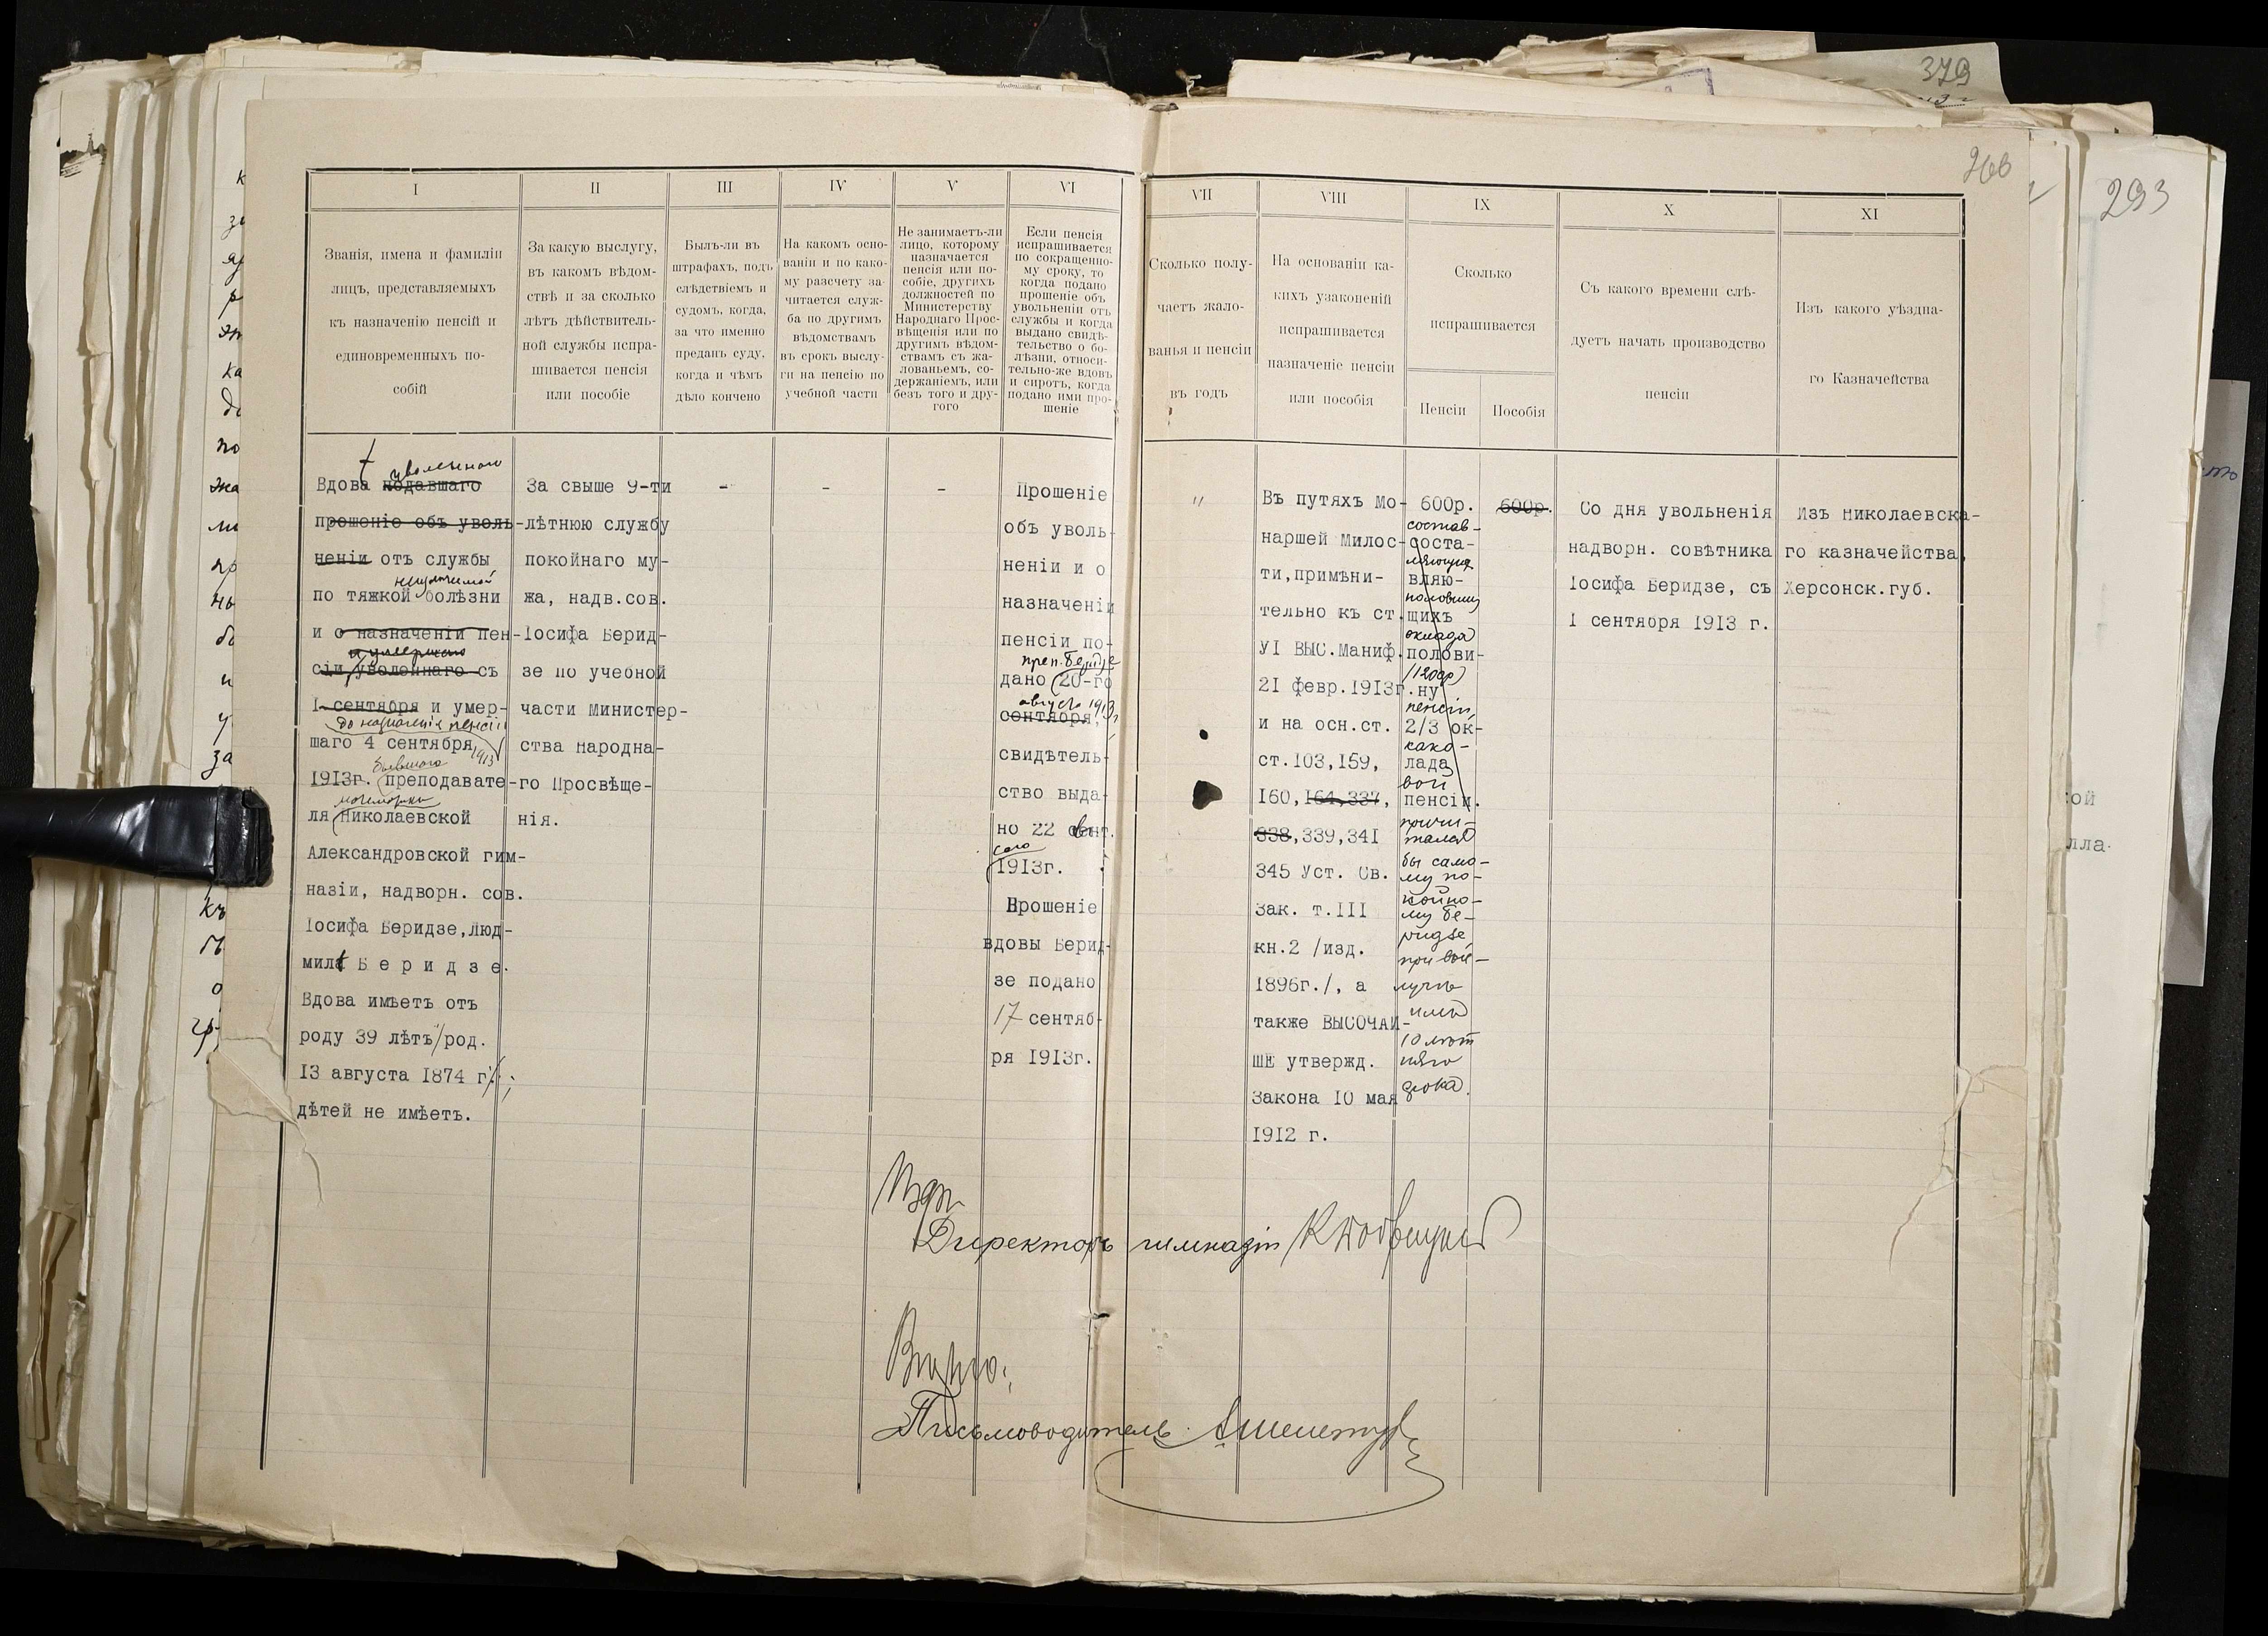 379
266
293
I
Званія, имена и фамиліи
лицъ, представляемыхъ
къ назначенію пенсій и
единовременныхъ по-
собій
II
За какую выслугу,
въ какомъ вѣдом-
ствѣ и за сколько
лѣтъ дѣйствитель-
ной службы испра-
шивается пенсія
или пособіе
III
Былъ-ли въ
штрафахъ, подъ
слѣдствіемъ и
судомъ, когда,
за что именно
преданъ суду,
когда и чѣмъ
дѣло кончено
IV
На какомъ осно-
ваніи и по како-
му разсчету за-
читается служ-
ба по другимъ
вѣдомствамъ
въ срокъ выслу-
ги на пенсію по
учебной части
V
Не занимаетъ-ли
лицо, которому
назначается
пенсія или по-
собіе, другихъ
должностей по
Министерству
Народнаго Прос-
вѣщенія или по
другимъ вѣдом-
ствамъ съ жа-
лованьемъ, со-
держаніемъ, или
безъ того и дру-
гого
VI
Если пенсія
испрашивается
по сокращенно-
му сроку, то
когда подано
прошеніе объ
увольненіи отъ
службы и когда
выдано свидѣ-
тельство о бо-
лѣзни, относи-
тельно-же вдовъ
и сиротъ, когда
подано ими про-
шеніе
VII
Сколько полу-
чаетъ жало-
ванья и пенсіи
въ годъ
VIII
На основаніи ка-
кихъ узаконеній
испрашивается
назначеніе пенсіи
или пособія
IX
Сколько
испрашивается
Пенсіи
Пособія
X
Съ какого времени слѣ-
дуетъ начать производство
пенсіи
XI
Изъ какого уѣздна-
го Казначейства
уволеннаго
Вдова подавшаго
прошеніе объ уволь-
неніи отъ службы
неизлечимой
по тяжкой болѣзни
и о назначеніи пен-
и умершаго
сіи, уволеннаго съ
1 сентября и умер-
до назначенія пенсіи
шаго 4 сентября 1913
бывшаго
1913г. преподавате-
математики
ля Николаевской
Александровской гим-
назіи, надворн. сов.
Іосифа Беридзе, Люд-
мила Беридзе.
Вдова имѣетъ отъ
роду 39 лѣтъ /род.
13 августа 1874 г/.;
дѣтей не имѣетъ.
За свыше 9-ти
лѣтнюю службу
покойнаго му-
жа, надв.сов.
Іосифа Берид-
зе по учебной
части Министер-
ства Народна-
го Просвѣще-
нія.
-
-
-
Прошеніе
объ уволь-
неніи и о
назначеніи
пенсіи по-
преп. Беридзе
дано 20-го
августа 1913 г.
сентября,
свидѣтель-
ство выда-
но 22 сент.
сего
1913г.
Прошеніе
вдовы Берид-
зе подано
17 сентяб-
ря 1913г.
"
Въ путяхъ Мо-
наршей Милос-
ти, примѣни-
тельно къ ст.
УІ ВЫС.Маниф.
21 февр.1913г.
и на осн.ст.
ст.103,159,
160,164,337,
338,339,341
345 Уст. Св.
Зак. т.III
кн.2 /изд.
1896г./, а
также ВЫСОЧАЙ-
ШЕ утвержд.
Закона 10 мая
1912 г.
600р.
состав-
соста-
ляющих
вляю-
половину
щихъ
оклада
полови-
(1200р)
ну
пенсіи,
2/3 ок-
како-
лада
вой
пенсіи.
причи-
талась
бы само-
му по-
койно-
му Бе-
ридзе
при вы-
слугѣ
имъ
10 лѣт
няго
срока.
600р.
Со дня увольненія
надворн. совѣтника
Іосифа Беридзе, съ
1 сентября 1913 г.
Изъ Николаевска-
го казначейства,
Херсонск.губ.
Директоръ гимназіи
Вѣрно:
Письмоводитель